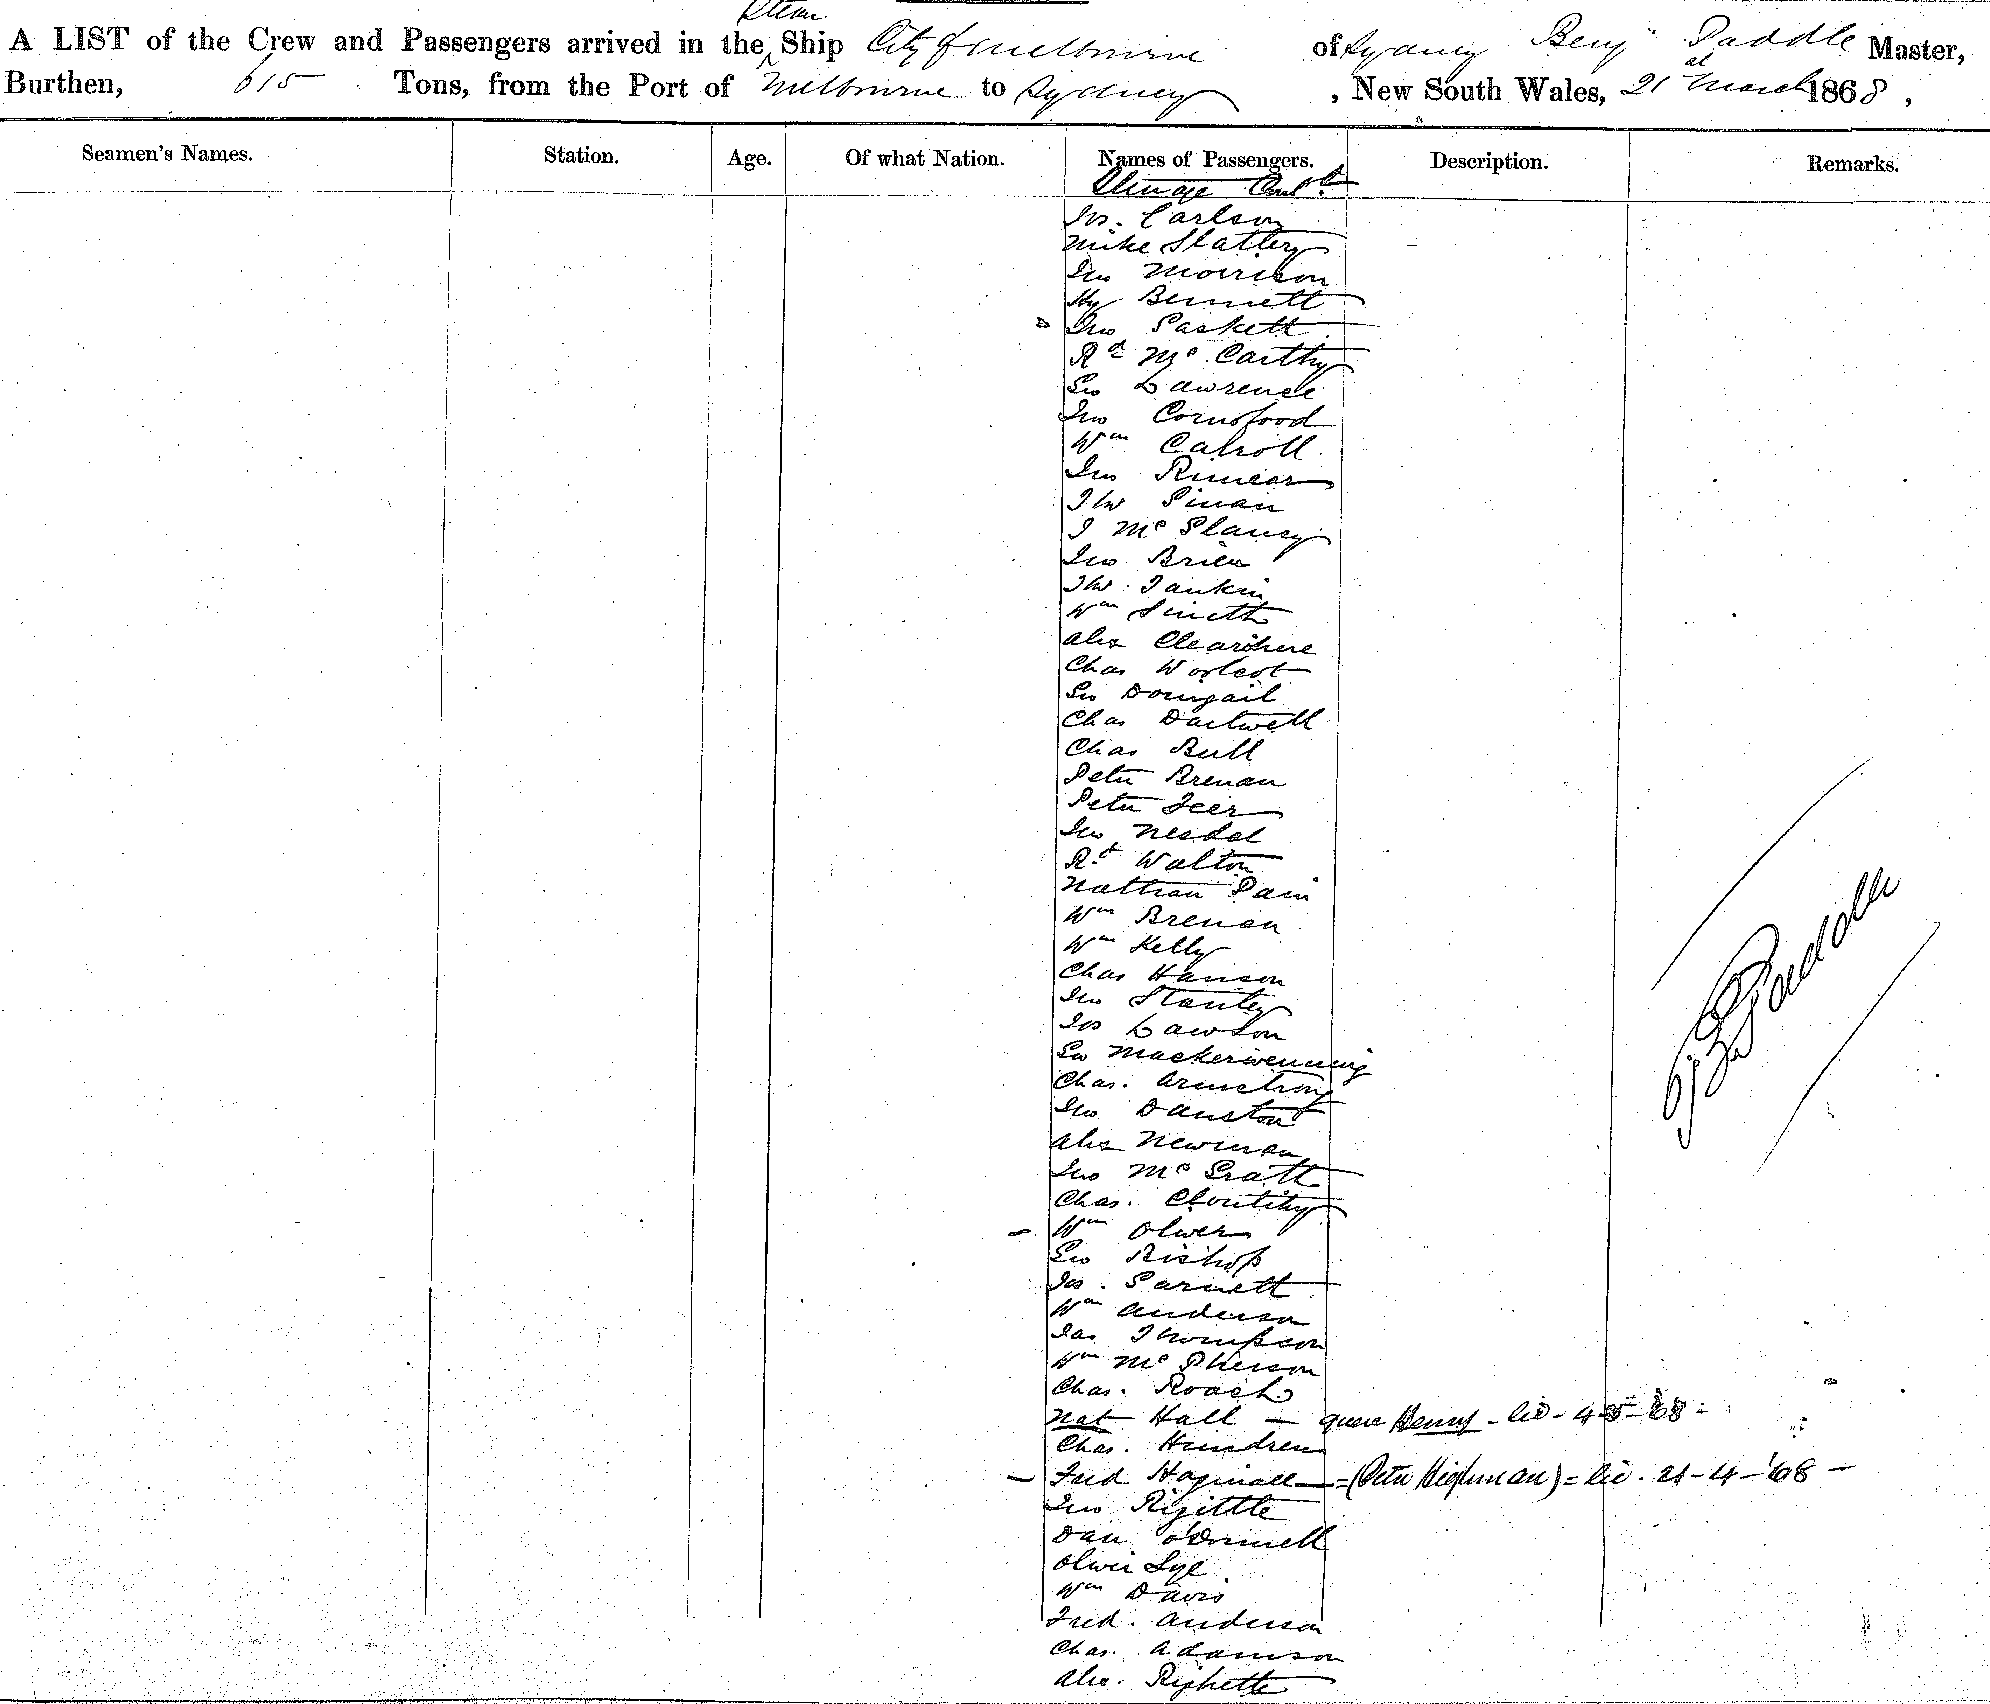 Steam
A LIST of the Crew and Passengers arrived in the Ship City of Melbourne of Sydney Benj Paddle Master,
Burthen, 615 Tons, from the Port of Melbourne to Sydney, New South Wales, 21st March 1868,
Seamen's Names. Station. Age. Of what Nation. Names of Passengers. Description. Remarks.
Steerage
Jos. Carlson
Mike Slattery
Jno Morrison
Hy Bennett
Jno Paskett
Rd Mc Carthy
Geo Lawrence
Jno Cornsfood
Wm Calroll
Jno
Tho Pinan
J Mc Slaney
Jno Brien
Tho. Tankin
Wm Smith
Alex
Chas Worlcot
Geo Dougail
Chas Dartwell
Chas Bull
Peter Brenan
Peter Feer
Jno Nesdal
Rt Walton
Nathan Pain
Wm Brenan
Wm Kelly
Chas Hanson
Jno Stanley
Jos Lawson
Geo
Chas. Armstrong
Jno Danston
Alex Newman
Jno Mc Gratt
Chas.
Wm Oliver
Geo Bishop
Jos. Garnett
Wm Anderson
Jas Thompson
Wm Mc Pherson
Chas. Roach
Nat Hall — quere Henry - lic - 4-5-68 -
Chas. Hundren
Fred Hagmall = (Petr Highman) = lic. 21-4-'68 -
Jno Rigittle
Dan O'Donnell
Oliver Lyl
Wm Davis
Fred. Anderson
Chas. Adamson
Alex. Righette
B Paddle